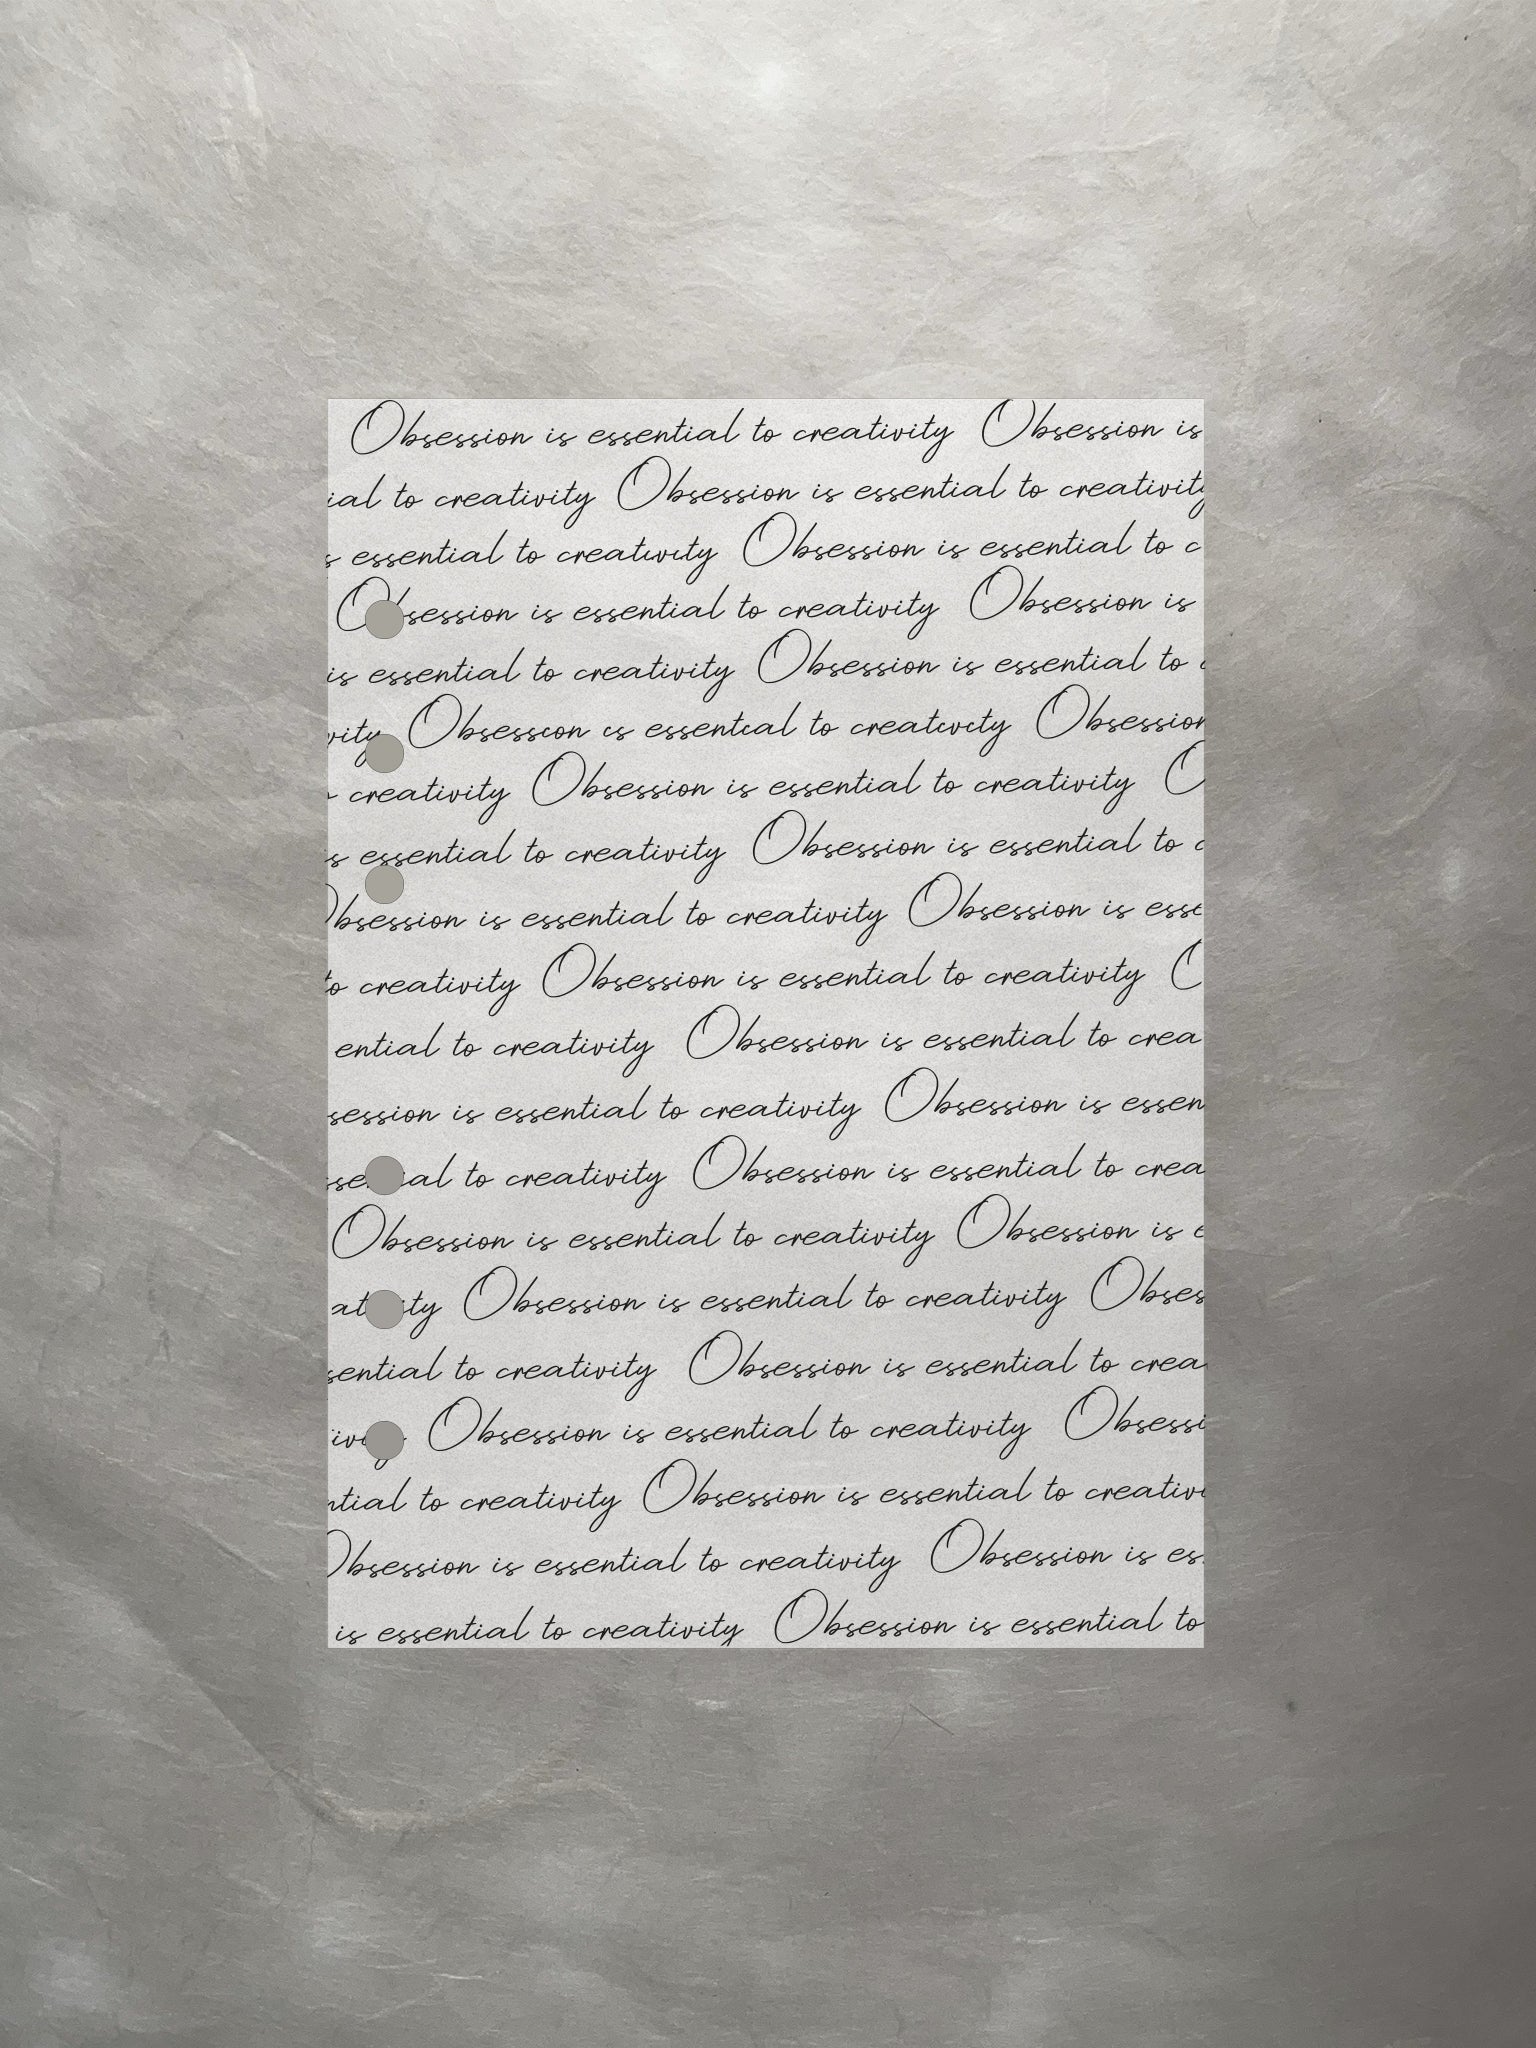 Obsession is essential to creativity Obsession is
ial to creativity Obsession is essential to creativity
s essential to creativity Obsession is essential to c
Obsession is essential to creativity Obsession is
is essential to creativity Obsession is essential to c
vity Obsession is essential to creativity Obsession
creativity Obsession is essential to creativity O
is essential to creativity Obsession is essential to c
Obsession is essential to creativity Obsession is esse
to creativity Obsession is essential to creativity O
ential to creativity Obsession is essential to crea
session is essential to creativity Obsession is essen
ial to creativity Obsession is essential to crea
Obsession is essential to creativity Obsession is e
ity Obsession is essential to creativity Obses
sential to creativity Obsession is essential to crea
Obsession is essential to creativity Obsessi
ntial to creativity Obsession is essential to creativi
Obsession is essential to creativity Obsession is es
is essential to creativity Obsession is essential to